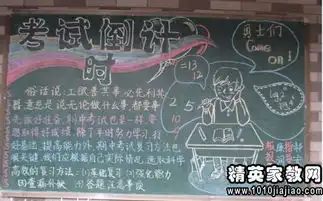 考试倒计
时
勇士们
Come
on!
=13
10
12
2
5
俗话说:工欲善其事必先利其
器意思是说无论做什么事,都要事
先做好准备,期中考试也是一样,要
想取得好成绩,除了平时努力学习打
好基础,提高能力外,期中考试复习方法也
很关键,我们应根据自己实际情况,选取科学
高效的复习方法:(1)基础复习 (2)强化能力
(3)查漏补缺 (4)答题注意事项
精英家教网
www.1010jiajiao.com